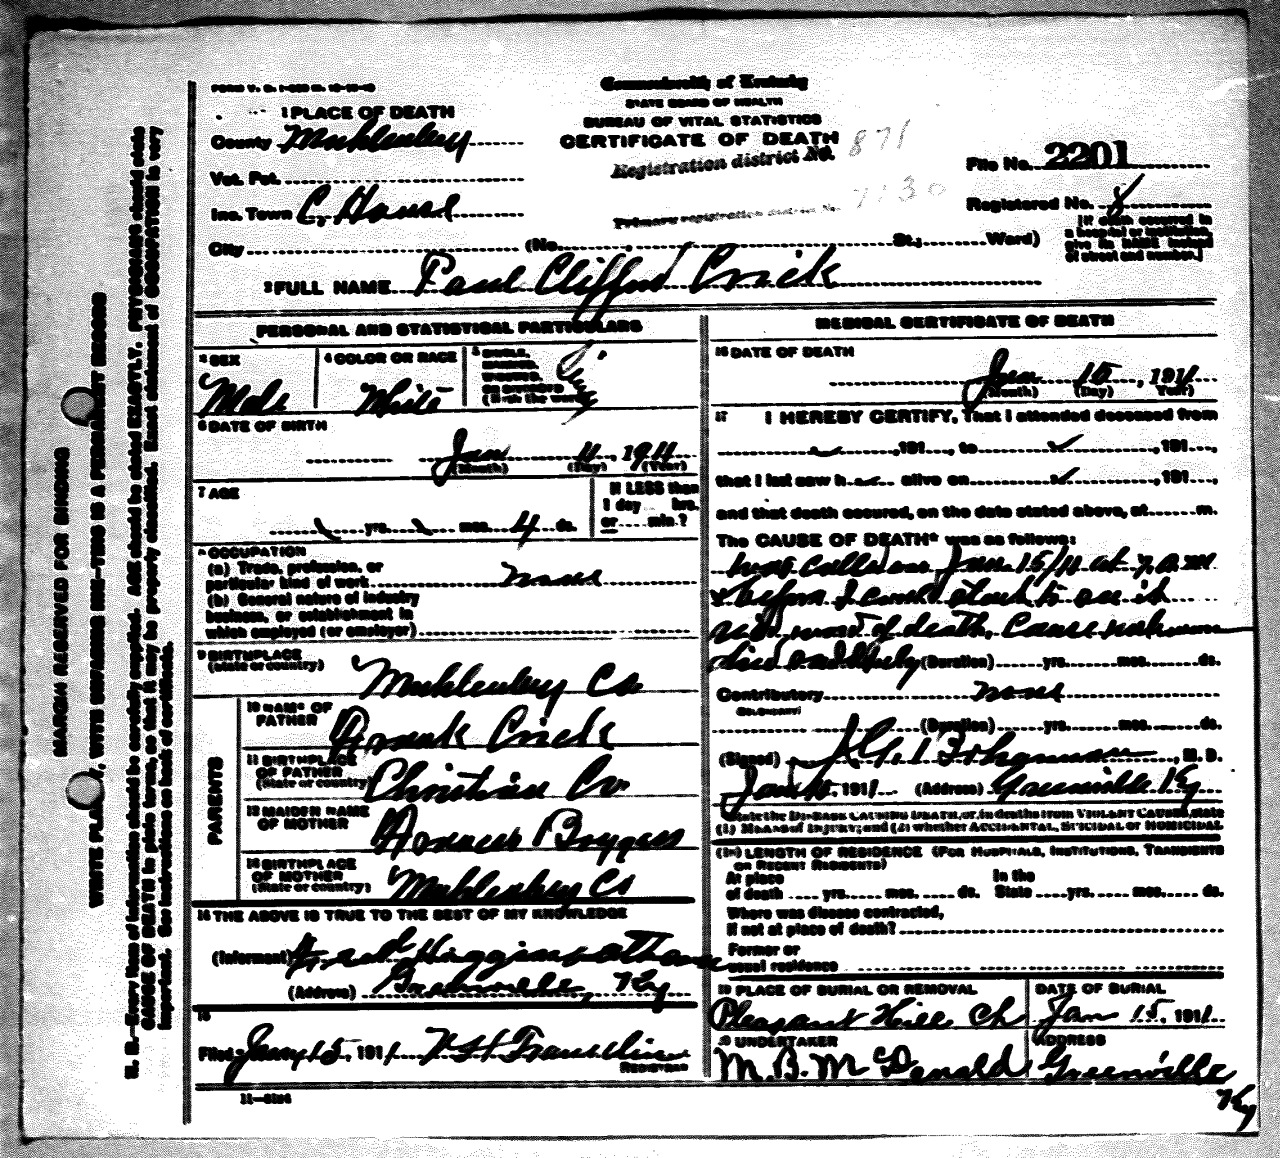 FORM V. S.
Commonwealth of Kentucky
STATE BOARD OF HEALTH
BUREAU OF VITAL STATISTICS
CERTIFICATE OF DEATH
1 PLACE OF DEATH
County Muhlenburg
Registration district No. 871
File No. 2201
Vot. Pct.
Inc. Town C. House
Primary registration district No. 7130
Registered No.
[If death occurred in
a hospital or institution,
give its NAME instead
of street and number.]
City (No. St.; Ward)
2 FULL NAME Paul Clifford Crick
PERSONAL AND STATISTICAL PARTICULARS
3 SEX
Male
4 COLOR OR RACE
White
5 SINGLE,
MARRIED,
WIDOWED,
OR DIVORCED
(Write the word)
6 DATE OF BIRTH
Jan 11, 1911
(Month) (Day) (Year)
7 AGE
yrs. mos. 4 ds.
If LESS than
1 day hrs.
or min.?
8 OCCUPATION
(a) Trade, profession, or
particular kind of work none
(b) General nature of industry
business, or establishment in
which employed (or employer)
9 BIRTHPLACE
(State or country)
Muhlenburg Co.
PARENTS
10 NAME OF
FATHER
Frank Crick
11 BIRTHPLACE
OF FATHER
(State or country)
Christian Co.
12 MAIDEN NAME
OF MOTHER
13 BIRTHPLACE
OF MOTHER
(State or country)
Muhlenburg Co
14 THE ABOVE IS TRUE TO THE BEST OF MY KNOWLEDGE
(Informant) Fred Higginbotham
(Address) Greenville, Ky
15
Filed Jany 15, 1911 Franklin
REGISTRAR
11—3184
MEDICAL CERTIFICATE OF DEATH
16 DATE OF DEATH
Jan 15, 1911
(Month) (Day) (Year)
17 I HEREBY CERTIFY, That I attended deceased from
, 191 , to , 191 ,
that I last saw h alive on , 191 ,
and that death occured, on the date stated above, at m.
The CAUSE OF DEATH* was as follows:
Was called Jan 15/11 at 7 a.m
& before I could start to see it
rec'd word of death. Cause unknown
died suddenly (Duration) yrs. mos. ds.
Contributory none
SECONDARY
(Duration) yrs. mos. ds.
(Signed) , M. D.
Jan 16, 1911 (Address) Greenville Ky
*State the DISEASE CAUSING DEATH, or, in deaths from VIOLENT CAUSES, state
(1) MEANS of INJURY; and (2) whether ACCIDENTAL, SUICIDAL or HOMICIDAL
(18) LENGTH OF RESIDENCE (FOR HOSPITALS, INSTITUTIONS, TRANSIENTS
OR RECENT RESIDENTS)
At place
of death yrs. mos. ds.
In the
State yrs. mos. ds.
Where was disease contracted,
if not at place of death?
Former or
usual residence
19 PLACE OF BURIAL OR REMOVAL
Pleasant Hill Ch
DATE OF BURIAL
Jan 15, 1911
20 UNDERTAKER
M. B. McDonald
ADDRESS
Greenville
Ky
MARGIN RESERVED FOR BINDING
WRITE PLAINLY, WITH UNFADING INK—THIS IS A PERMANENT RECORD
N. B.—Every item of information should be carefully supplied. AGE should be stated EXACTLY. PHYSICIANS should state
CAUSE OF DEATH in plain terms, so that it may be properly classified. Exact statement of OCCUPATION is very
important. See instructions on back of certificate.